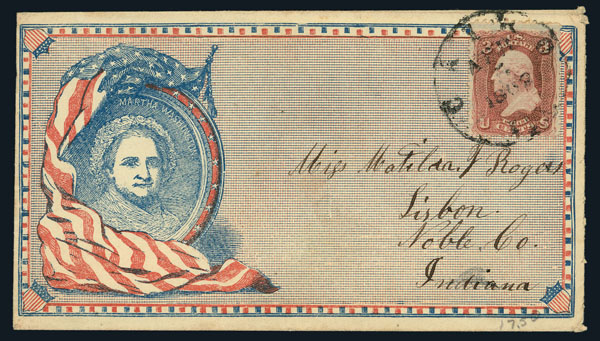 MARTHA WASHINGTON
CAIRO
U S POSTAGE
Miss Matilda J Rogers
Lisbon.
Noble. Co.
Indiana